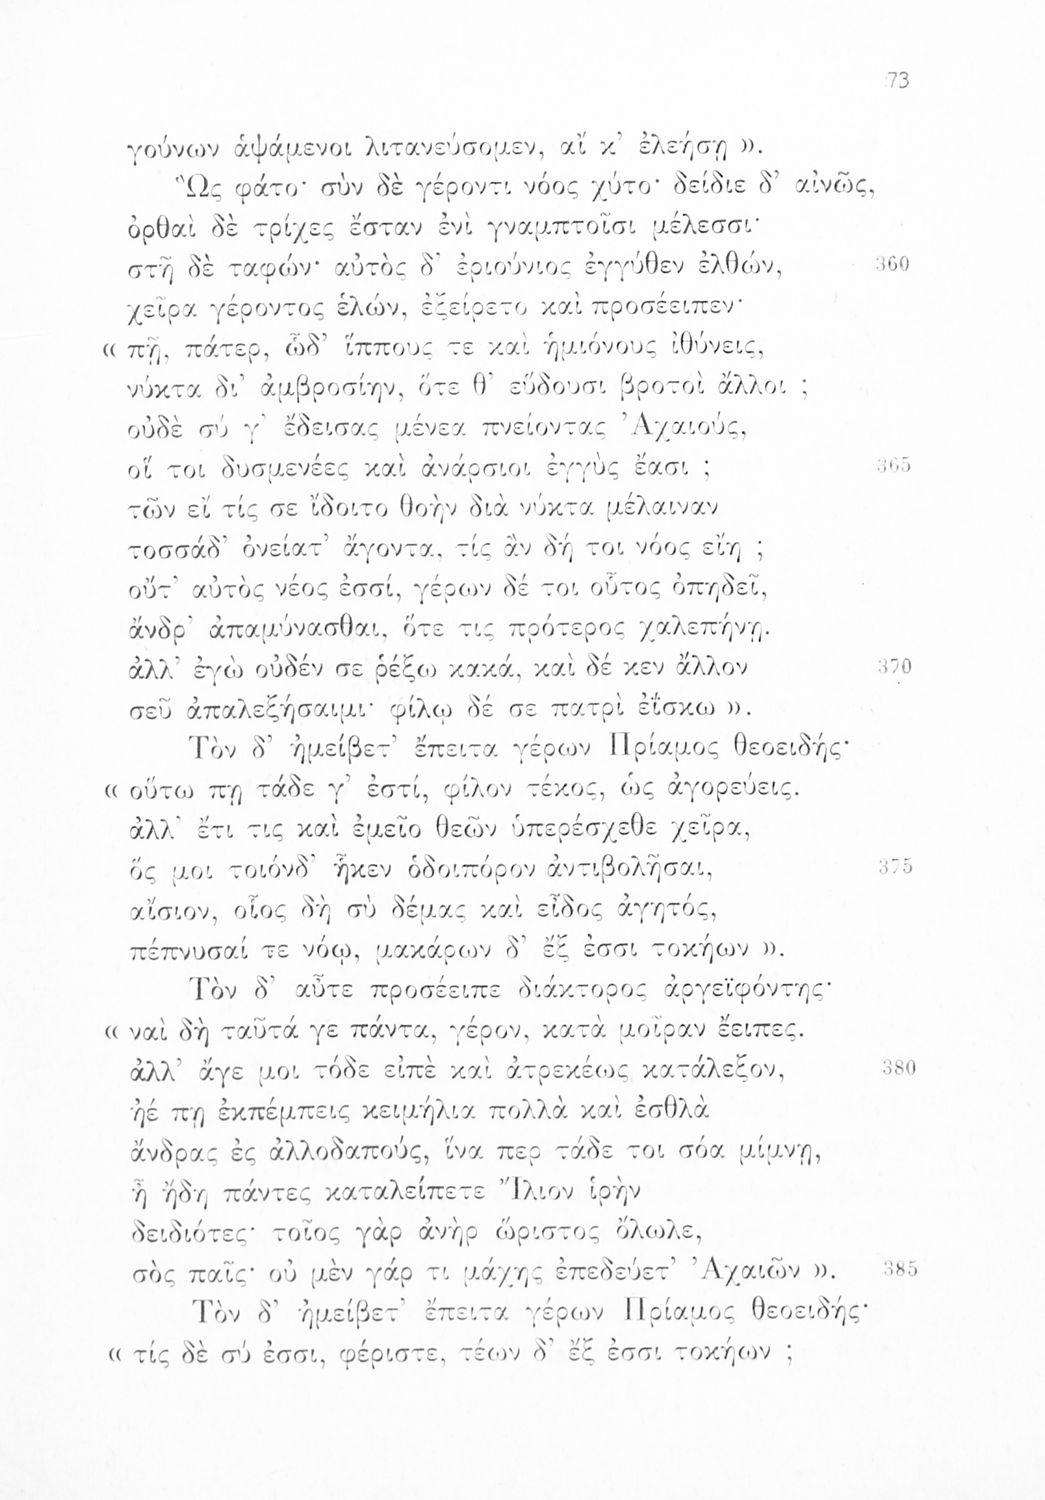 73
γούνων ἁψάμενοι λιτανεύσομεν, αἴ κ' ἐλεήσῃ ».
Ὣς φάτο· σὺν δὲ γέροντι νόος χύτο· δείδιε δ' αἰνῶς,
ὀρθαὶ δὲ τρίχες ἔσταν ἐνὶ γναμπτοῖσι μέλεσσι·
στῆ δὲ ταφών· αὐτὸς δ' ἐριούνιος ἐγγύθεν ἐλθών, 360
χεῖρα γέροντος ἑλών, ἐξείρετο καὶ προσέειπεν·
« πῇ, πάτερ, ὧδ' ἵππους τε καὶ ἡμιόνους ἰθύνεις,
νύκτα δι' ἀμβροσίην, ὅτε θ' εὕδουσι βροτοὶ ἄλλοι ;
οὐδὲ σύ γ' ἔδεισας μένεα πνείοντας Ἀχαιούς,
οἵ τοι δυσμενέες καὶ ἀνάρσιοι ἐγγὺς ἔασι ; 365
τῶν εἴ τίς σε ἴδοιτο θοὴν διὰ νύκτα μέλαιναν
τοσσάδ' ὀνείατ' ἄγοντα, τίς ἂν δή τοι νόος εἴη ;
οὔτ' αὐτὸς νέος ἐσσί, γέρων δέ τοι οὗτος ὀπηδεῖ,
ἄνδρ' ἀπαμύνασθαι, ὅτε τις πρότερος χαλεπήνῃ.
ἀλλ' ἐγὼ οὐδέν σε ῥέξω κακά, καὶ δέ κεν ἄλλον 370
σεῦ ἀπαλεξήσαιμι· φίλῳ δέ σε πατρὶ ἐΐσκω ».
Τὸν δ' ἠμείβετ' ἔπειτα γέρων Πρίαμος θεοειδής·
« οὕτω πῃ τάδε γ' ἐστί, φίλον τέκος, ὡς ἀγορεύεις.
ἀλλ' ἔτι τις καὶ ἐμεῖο θεῶν ὑπερέσχεθε χεῖρα,
ὅς μοι τοιόνδ' ἧκεν ὁδοιπόρον ἀντιβολῆσαι, 375
αἴσιον, οἷος δὴ σὺ δέμας καὶ εἶδος ἀγητός,
πέπνυσαί τε νόῳ, μακάρων δ' ἔξ ἐσσι τοκήων ».
Τὸν δ' αὖτε προσέειπε διάκτορος ἀργεϊφόντης·
« ναὶ δὴ ταῦτά γε πάντα, γέρον, κατὰ μοῖραν ἔειπες.
ἀλλ' ἄγε μοι τόδε εἰπὲ καὶ ἀτρεκέως κατάλεξον, 380
ἠέ πῃ ἐκπέμπεις κειμήλια πολλὰ καὶ ἐσθλὰ
ἄνδρας ἐς ἀλλοδαπούς, ἵνα περ τάδε τοι σόα μίμνῃ,
ἦ ἤδη πάντες καταλείπετε Ἴλιον ἱρὴν
δειδιότες· τοῖος γὰρ ἀνὴρ ὥριστος ὄλωλε,
σὸς παῖς· οὐ μὲν γάρ τι μάχης ἐπεδεύετ' Ἀχαιῶν ». 385
Τὸν δ' ἠμείβετ' ἔπειτα γέρων Πρίαμος θεοειδής·
« τίς δὲ σύ ἐσσι, φέριστε, τέων δ' ἔξ ἐσσι τοκήων ;